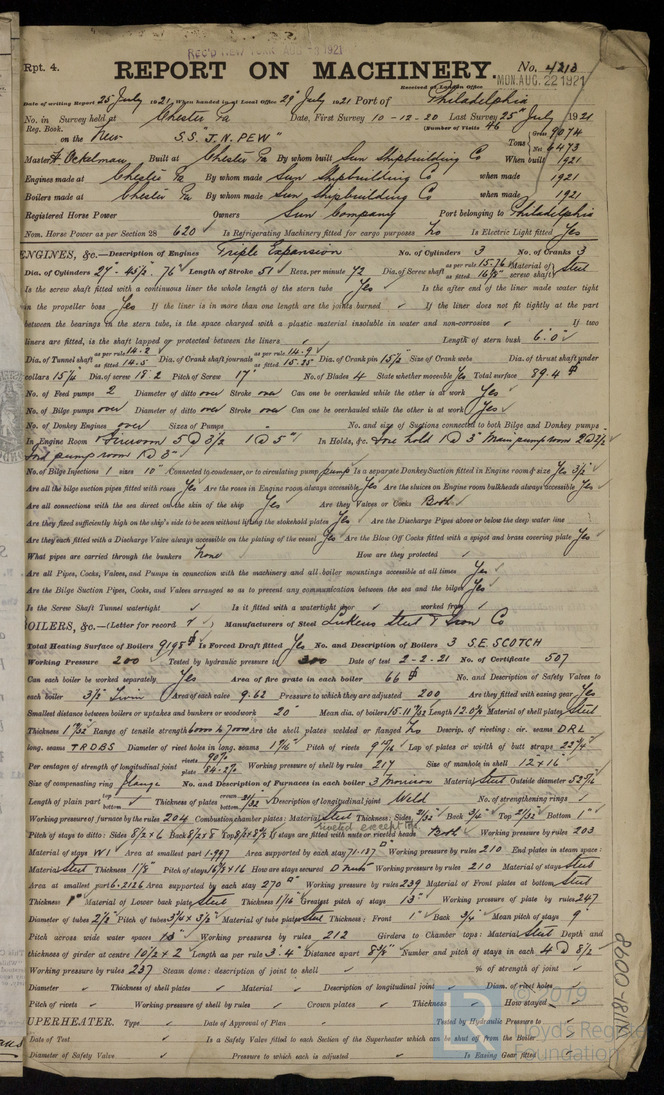 REC'D NEW YORK AUG 1921
Rpt. 4. REPORT ON MACHINERY. No. 4213
Received at London Office MON. AUG. 22 1921
Date of writing Report 25 July 1921 When handed in at Local Office 29 July 1921 Port of Philadelphia
No. in Survey held at Chester Pa Date, First Survey 10-12-20 Last Survey 25 July 1921
Reg. Book. (Number of Visits 46
on the New S.S. "J. N. PEW" Tons Gross 9074 Net 6473
Master Ockelman Built at Chester Pa By whom built Sun Shipbuilding Co When built 1921
Engines made at Chester Pa By whom made Sun Shipbuilding Co when made 1921
Boilers made at Chester Pa By whom made Sun Shipbuilding Co when made 1921
Registered Horse Power Owners Sun Company Port belonging to Philadelphia
Nom. Horse Power as per Section 28 620 Is Refrigerating Machinery fitted for cargo purposes No Is Electric Light fitted Yes
ENGINES, &c.—Description of Engines Triple Expansion No. of Cylinders 3 No. of Cranks 3
Dia. of Cylinders 27"- 45½- 76" Length of Stroke 51" Revs. per minute 72 Dia. of Screw shaft as per rule 15.76 as fitted 16⅝" Material of screw shaft Steel
Is the screw shaft fitted with a continuous liner the whole length of the stern tube Yes Is the after end of the liner made water tight
in the propeller boss Yes If the liner is in more than one length are the joints burned ✓ If the liner does not fit tightly at the part
between the bearings in the stern tube, is the space charged with a plastic material insoluble in water and non-corrosive ✓ If two
liners are fitted, is the shaft lapped or protected between the liners ✓ Length of stern bush 6'.0"
Dia. of Tunnel shaft as per rule 14.2 as fitted 14.5 Dia. of Crank shaft journals as per rule 14.9 as fitted 15.25" Dia. of Crank pin 15½ Size of Crank webs Dia. of thrust shaft under
collars 15¼" Dia. of screw 18.2 Pitch of Screw 17" No. of Blades 4 State whether moveable Yes Total surface 89.4
No. of Feed pumps 2 Diameter of ditto over Stroke over Can one be overhauled while the other is at work Yes
No. of Bilge pumps over Diameter of ditto over Stroke over Can one be overhauled while the other is at work Yes
No. of Donkey Engines over Sizes of Pumps " No. and size of Suctions connected to both Bilge and Donkey pumps
In Engine Room Fireroom 5 @ 3½ 1 @ 5" In Holds, &c. Fore hold 1 @ 3" Main pump room 2 @ 3½
Fwd pump room 1 @ 3"
No. of Bilge Injections 1 sizes 10" Connected to condenser, or to circulating pump pump Is a separate Donkey Suction fitted in Engine room & size Yes 3½"
Are all the bilge suction pipes fitted with roses Yes Are the roses in Engine room always accessible Yes Are the sluices on Engine room bulkheads always accessible Yes
Are all connections with the sea direct on the skin of the ship Yes Are they Valves or Cocks Both
Are they fixed sufficiently high on the ship's side to be seen without lifting the stokehold plates Yes Are the Discharge Pipes above or below the deep water line
Are they each fitted with a Discharge Valve always accessible on the plating of the vessel Yes Are the Blow Off Cocks fitted with a spigot and brass covering plate Yes
What pipes are carried through the bunkers None How are they protected ✓
Are all Pipes, Cocks, Valves, and Pumps in connection with the machinery and all boiler mountings accessible at all times Yes
Are the Bilge Suction Pipes, Cocks, and Valves arranged so as to prevent any communication between the sea and the bilges Yes
Is the Screw Shaft Tunnel watertight ✓ Is it fitted with a watertight door ✓ worked from ✓
BOILERS, &c.—(Letter for record ✓ ) Manufacturers of Steel Lukens Steel & Iron Co
Total Heating Surface of Boilers 9198 Is Forced Draft fitted Yes No. and Description of Boilers 3 S.E. SCOTCH
Working Pressure 200 Tested by hydraulic pressure to 300 Date of test 2-2-21 No. of Certificate 507
Can each boiler be worked separately Yes Area of fire grate in each boiler 66 No. and Description of Safety Valves to
each boiler 3½ Twin Area of each valve 9.62 Pressure to which they are adjusted 200 Are they fitted with easing gear Yes
Smallest distance between boilers or uptakes and bunkers or woodwork 20" Mean dia. of boilers 15-11 7/32 Length 12.0⅝ Material of shell plates Steel
Thickness 1 15/32 Range of tensile strength Are the shell plates welded or flanged No Descrip. of riveting: cir. seams DRL
long. seams TRDBS Diameter of rivet holes in long. seams 1 9/16" Pitch of rivets Lap of plates or width of butt straps 22¾"
Per centages of strength of longitudinal joint rivets 90% plate Working pressure of shell by rules 217 Size of manhole in shell 12 x 16
Size of compensating ring flange No. and Description of Furnaces in each boiler 3 Morrison Material Steel Outside diameter
Length of plain part top bottom Thickness of plates crown bottom 21/32 Description of longitudinal joint Weld No. of strengthening rings ✓
Working pressure of furnace by the rules 204 Combustion chamber plates: Material Steel Thickness: Sides 21/32 Back ¾" Top 21/32 Bottom 1"
Pitch of stays to ditto: Sides 8½ x 6 Back 8½ x 8 Top If stays are fitted with nuts or riveted heads riveted except Both Working pressure by rules 203
Material of stays W I Area at smallest part 1.997 Area supported by each stay 71.137 Working pressure by rules 210 End plates in steam space:
Material Steel Thickness 1⅛" Pitch of stays 16⅝ x 16 How are stays secured D Nuts Working pressure by rules 210 Material of stays Steel
Area at smallest part 6.2126 Area supported by each stay 270 Working pressure by rules 239 Material of Front plates at bottom Steel
Thickness 1" Material of Lower back plate Steel Thickness 1 1/16 Greatest pitch of stays 13" Working pressure of plate by rules 247
Diameter of tubes 2½ Pitch of tubes 3¾ x 3½" Material of tube plates Steel Thickness: Front 1" Back ¾" Mean pitch of stays 9"
Pitch across wide water spaces 13" Working pressures by rules 212 Girders to Chamber tops: Material Steel Depth and
thickness of girder at centre 10½ x 2 Length as per rule 3.4" Distance apart 8⅜" Number and pitch of stays in each 4 @ 8½
Working pressure by rules 237 Steam dome: description of joint to shell ✓ % of strength of joint ✓
Diameter ✓ Thickness of shell plates ✓ Material ✓ Description of longitudinal joint ✓ Diam. of rivet holes
Pitch of rivets ✓ Working pressure of shell by rules ✓ Crown plates ✓ Thickness ✓ How stayed ✓
SUPERHEATER. Type ✓ Date of Approval of Plan ✓ Tested by Hydraulic Pressure to ✓
Date of Test ✓ Is a Safety Valve fitted to each Section of the Superheater which can be shut off from the Boiler ✓
Diameter of Safety Valve ✓ Pressure to which each is adjusted ✓ Is Easing Gear fitted ✓
© 2019
LR
Lloyd's Register
Foundation